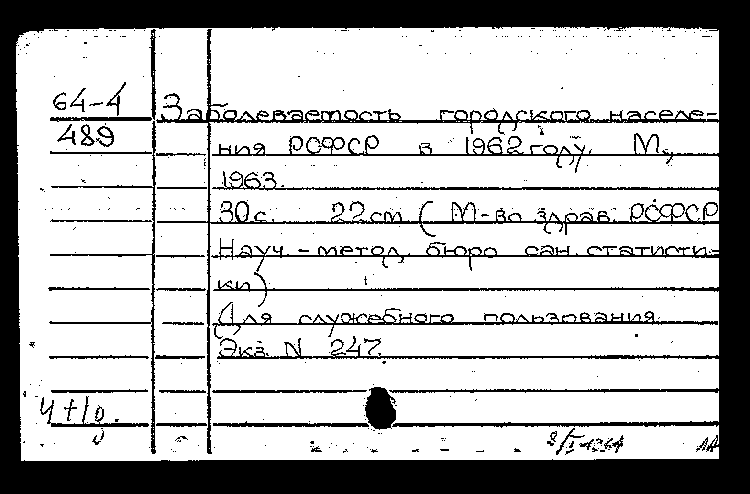 64-4 Заболеваемость городского населе-
489 ния РСФСР в 1962 году. М.,
1963.
30с. 22см (М-во здрав. РСФСР
Науч.-метод. бюро сан. статисти-
ки)
Для служебного пользования
Экз. N 247.